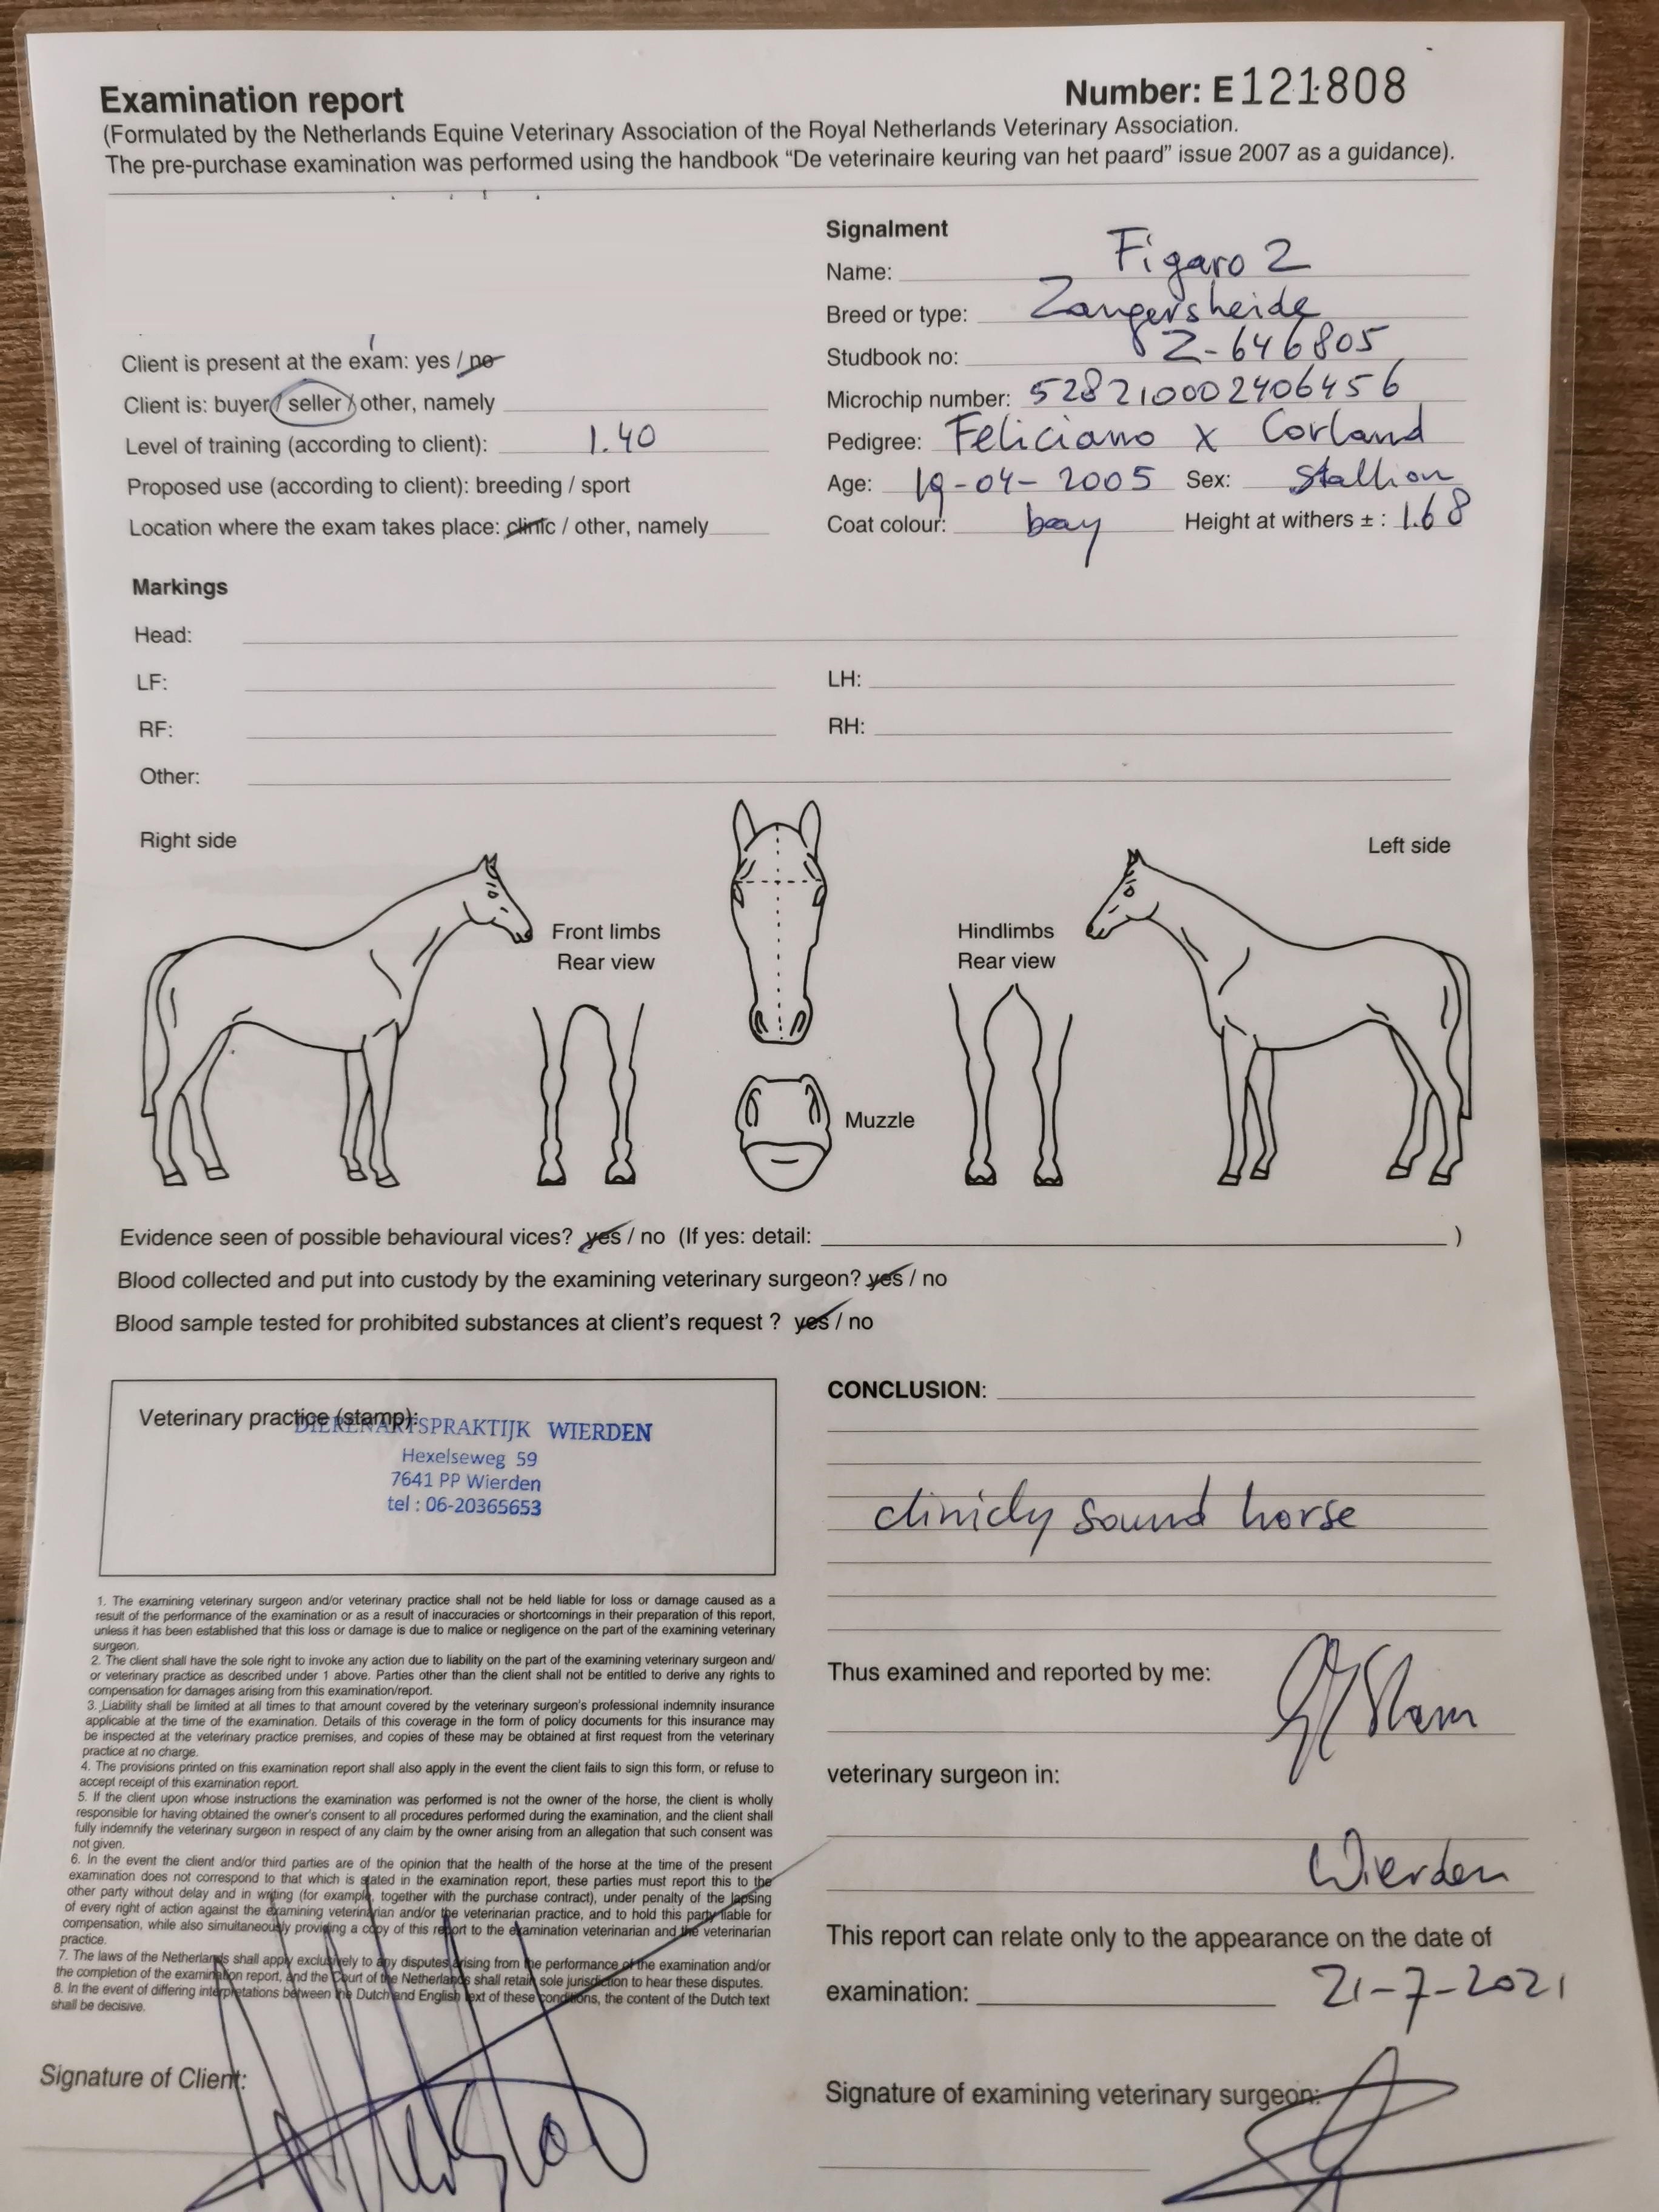 Examination report
Number: E 121808
(Formulated by the Netherlands Equine Veterinary Association of the Royal Netherlands Veterinary Association.
The pre-purchase examination was performed using the handbook “De veterinaire keuring van het paard” issue 2007 as a guidance).
Client is present at the exam: yes / no
Client is: buyer / seller / other, namely
Level of training (according to client): 1.40
Proposed use (according to client): breeding / sport
Location where the exam takes place: clinic / other, namely
Signalment
Name: Figaro 2
Breed or type: Zangersheide
Studbook no: Z-646805
Microchip number: 528210002406456
Pedigree: Feliciano x Corland
Age: 19-04-2005 Sex: Stallion
Coat colour: bay Height at withers ± : 1.68
Markings
Head:
LF: LH:
RF: RH:
Other:
Right side
Left side
Front limbs
Rear view
Hindlimbs
Rear view
Muzzle
Evidence seen of possible behavioural vices? yes / no (If yes: detail: )
Blood collected and put into custody by the examining veterinary surgeon? yes / no
Blood sample tested for prohibited substances at client's request ? yes / no
Veterinary practice (stamp):
DIERENARTSPRAKTIJK WIERDEN
Hexelseweg 59
7641 PP Wierden
tel : 06-20365653
1. The examining veterinary surgeon and/or veterinary practice shall not be held liable for loss or damage caused as a
result of the performance of the examination or as a result of inaccuracies or shortcomings in their preparation of this report,
unless it has been established that this loss or damage is due to malice or negligence on the part of the examining veterinary
surgeon.
2. The client shall have the sole right to invoke any action due to liability on the part of the examining veterinary surgeon and/
or veterinary practice as described under 1 above. Parties other than the client shall not be entitled to derive any rights to
compensation for damages arising from this examination/report.
3. Liability shall be limited at all times to that amount covered by the veterinary surgeon's professional indemnity insurance
applicable at the time of the examination. Details of this coverage in the form of policy documents for this insurance may
be inspected at the veterinary practice premises, and copies of these may be obtained at first request from the veterinary
practice at no charge.
4. The provisions printed on this examination report shall also apply in the event the client fails to sign this form, or refuse to
accept receipt of this examination report.
5. If the client upon whose instructions the examination was performed is not the owner of the horse, the client is wholly
responsible for having obtained the owner's consent to all procedures performed during the examination, and the client shall
fully indemnify the veterinary surgeon in respect of any claim by the owner arising from an allegation that such consent was
not given.
6. In the event the client and/or third parties are of the opinion that the health of the horse at the time of the present
examination does not correspond to that which is stated in the examination report, these parties must report this to the
other party without delay and in writing (for example, together with the purchase contract), under penalty of the lapsing
of every right of action against the examining veterinarian and/or the veterinarian practice, and to hold this party liable for
compensation, while also simultaneously providing a copy of this report to the examination veterinarian and the veterinarian
practice.
7. The laws of the Netherlands shall apply exclusively to any disputes arising from the performance of the examination and/or
the completion of the examination report, and the Court of the Netherlands shall retain sole jurisdiction to hear these disputes.
8. In the event of differing interpretations between the Dutch and English text of these conditions, the content of the Dutch text
shall be decisive.
Signature of Client:
CONCLUSION:
clinicly sound horse
Thus examined and reported by me:
veterinary surgeon in:
Wierden
This report can relate only to the appearance on the date of
examination: 21-7-2021
Signature of examining veterinary surgeon: